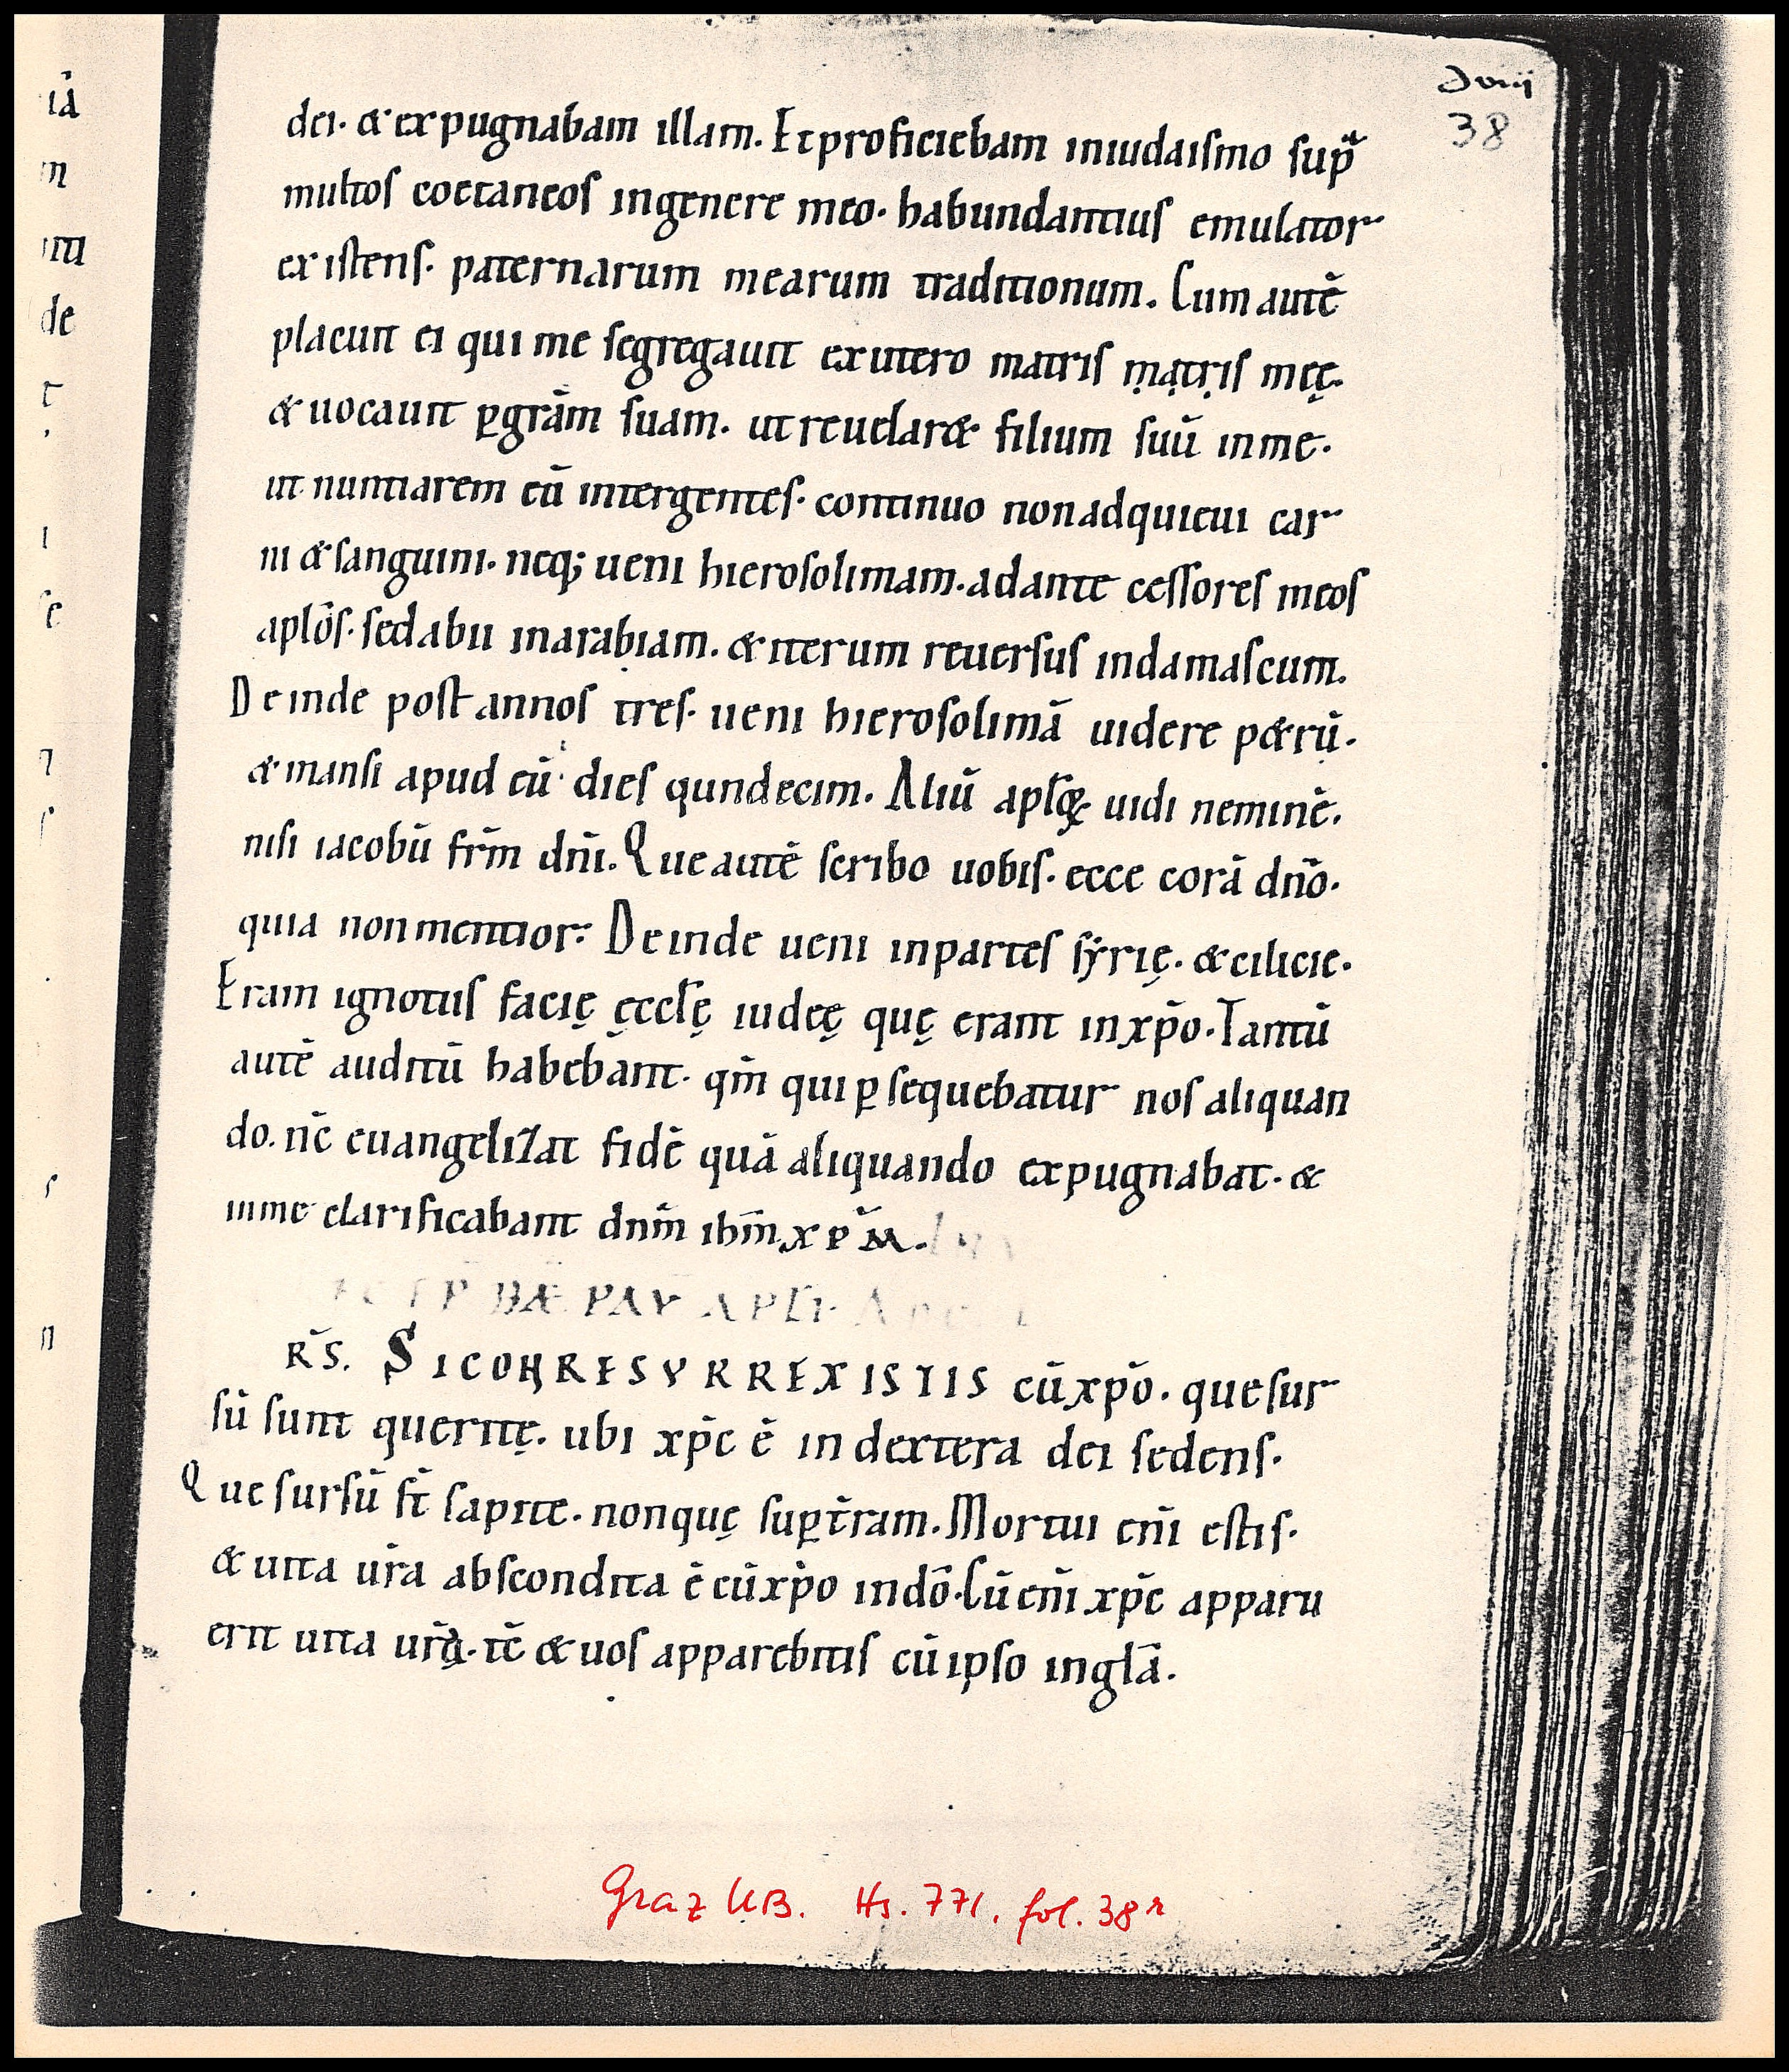 Junij
38
dei· & expugnabam illam. Et proficiebam iniudaismo sup̃
multos coetaneos ingenere meo· habundantius emulator
existens· paternarum mearum traditionum. Cum autē
placuit ei qui me segregauit exutero matris ṃạtṛịs meę.
& uocauit ꝑgrām suam. ut reuelar& filium suū inme·
ut nuntiarem eū intergentes· continuo nonadquieui car
ni & sanguini· neq; ueni hierosolimam. adante cessores meos
aplōs· sedabii inarabiam. & iterum reuersus indamascum.
Deinde post annos tres· ueni hierosolimā uidere p&rū·
& mansi apud eū· dies qundecim. Aliū aplōꝝ uidi neminē.
nisi iacobū frm̄ dnī. Que autē scribo uobis· ecce corā dnō·
quia nonmentior· Deinde ueni inpartes syrię. & cilicie·
Eram ignotus facię ęcclę̄ iudeę quę erant inxp̄o. Tantū
autē auditū habebant· qm̄ qui ꝑsequebatur nos aliquan
do. nc̄ euangelizat fidē quā aliquando expugnabat· &
inme clarificabant dnm̄ ihm̄ xpm̄.
BÆ PAV APLI·
R̄S. SICONRESVRREXISTIS cū xp̄o· quesur
sū sunt queritę. ubi xp̄c ē in dextera dei sedens·
Que sursū st̄ sapite. nonquę suꝑ tr̄am. Mortui enī estis·
& uita ur̄a abscondita ē cū xp̄o indō· Cū enī xp̄c apparu
erit uita ur̄a. tc̄ & uos apparebitis cū ipso inglā.
Graz UB. Hs. 771. fol. 38r